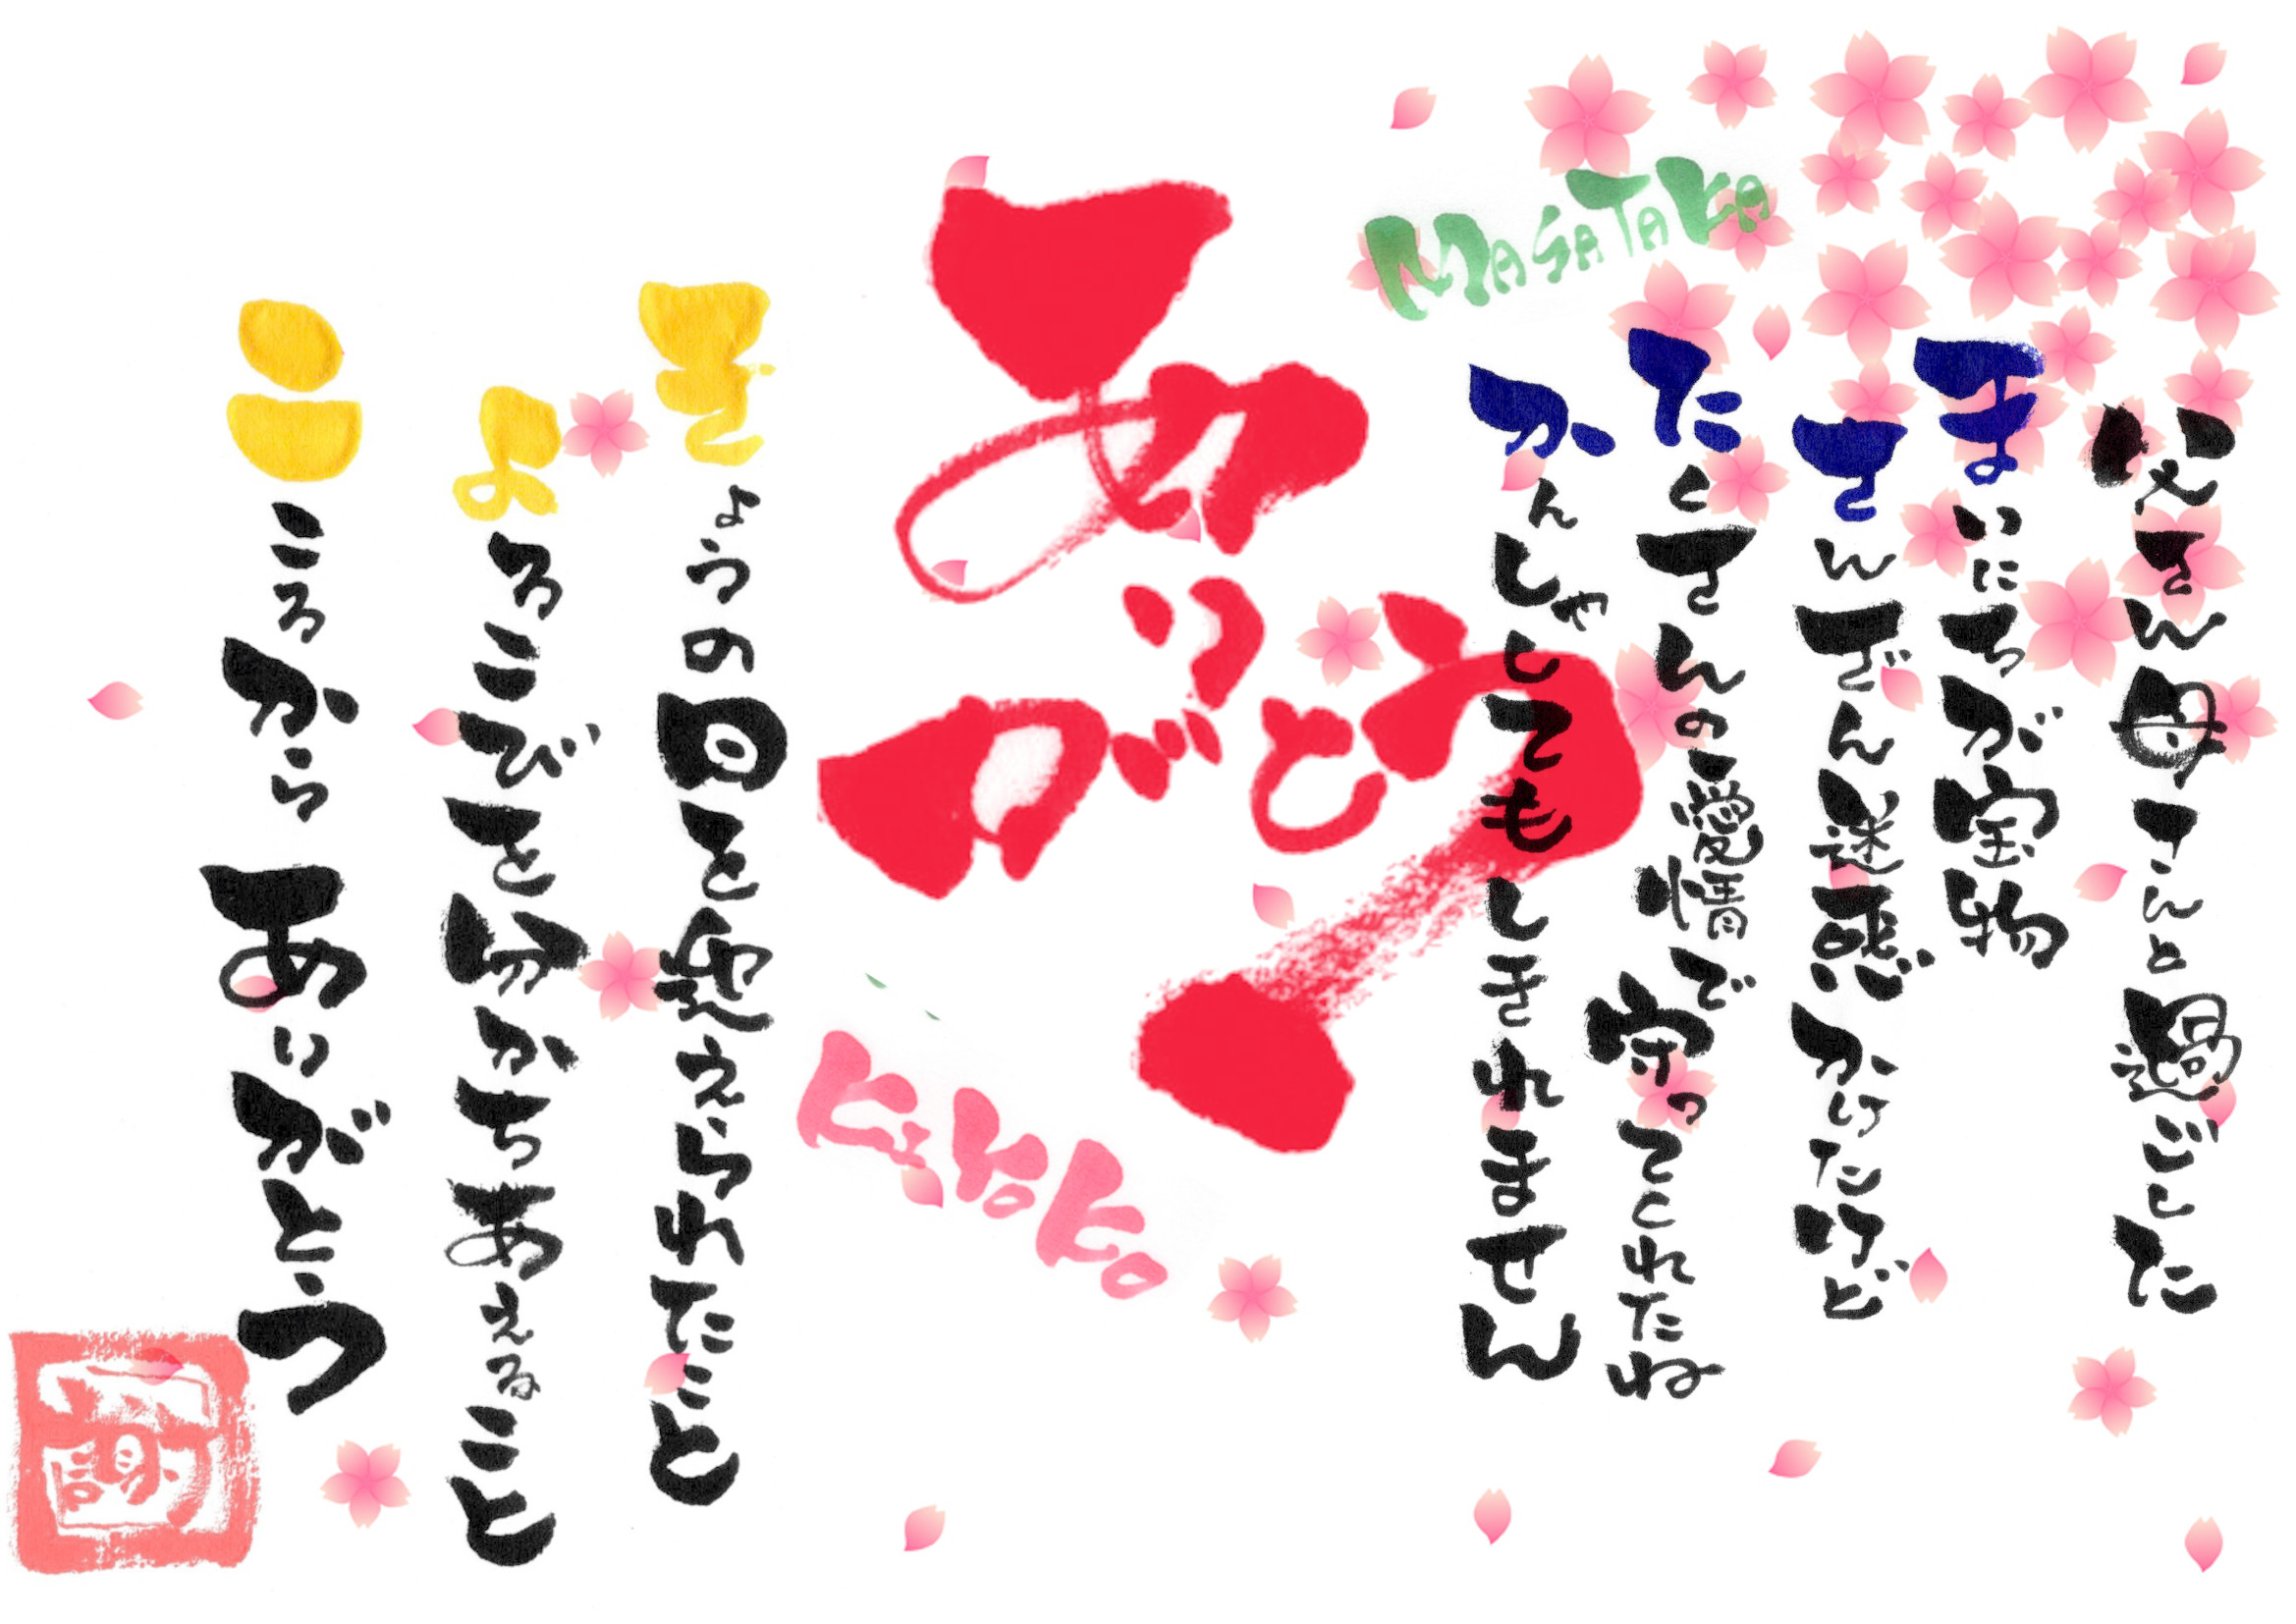 父さん母さんと過ごした
まいにちが宝物
さんざん迷惑かけたけど
たくさんの愛情で守ってくれたね
かんしゃしてもしきれません
MASATAKA
ありがとう
KiYoKo
きょうの日を迎えられたこと
よろこびを分かちあえること
こころからありがとう